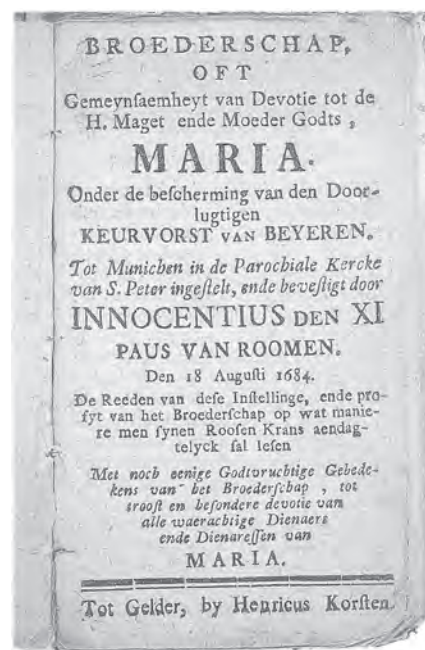 BROEDERSCHAP,
OFT
Gemeynſaemheyt van Devotie tot de
H. Maget ende Moeder Godts ,
MARIA.
Onder de beſcherming van den Door-
lugtigen
KEURVORST VAN BEYEREN.
Tot Municben in de Parochiale Kercke
van S. Peter ingeſtelt, ende beveſtigt door
INNOCENTIUS DEN XI
PAUS VAN ROOMEN.
Den 18 Auguſti 1684.
De Reeden van deſe Inſtellinge, ende pro-
fyt van het Broederſchap op wat manie-
re men ſynen Rooſen Krans aendag-
telyck ſal leſen
Met noch eenige Godtvruchtige Gebede-
kens van het Broederſchap , tot
trooſt en beſondere devotie van
alle waerachtige Dienaers
ende Dienareſſen van
MARIA.
Tot Gelder, by Henricus Korſten.